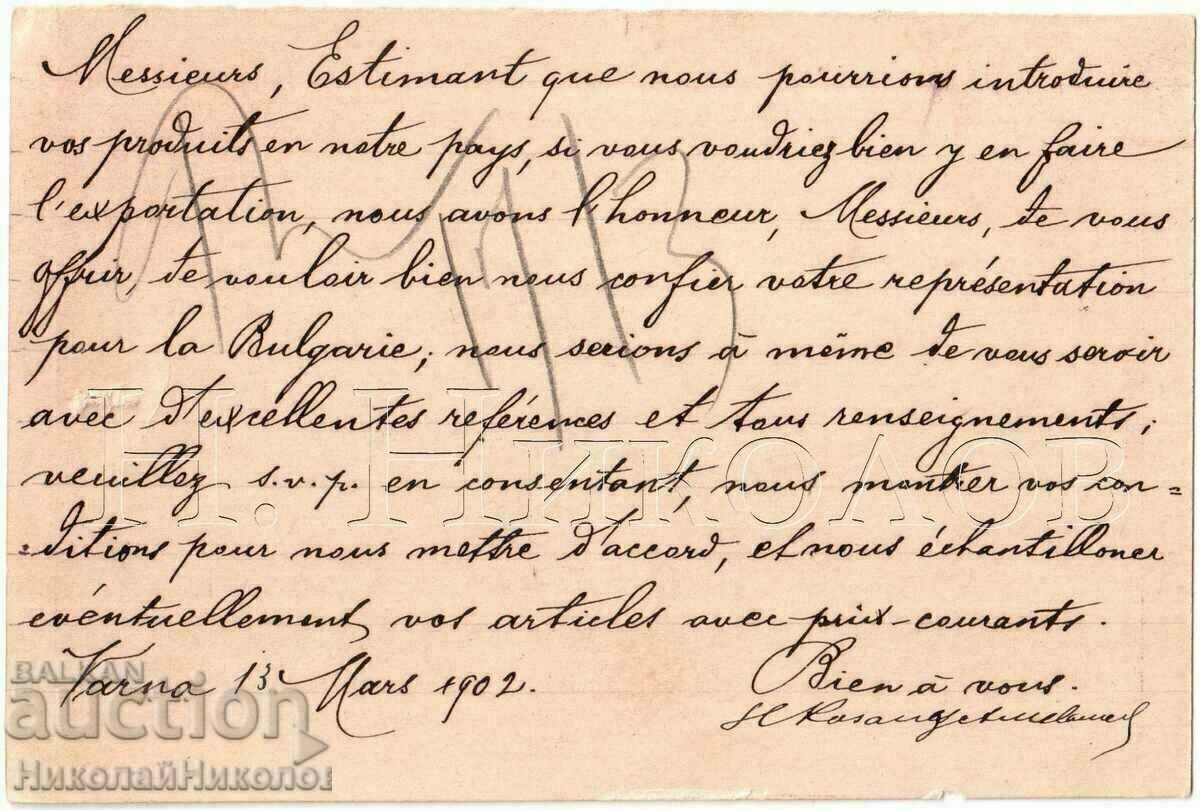 Messieurs, Estimant que nous pourrions introduire
vos produits en notre pays, si vous voudriez bien y en faire
l'exportation, nous avons l'honneur, Messieurs, de vous
offrir, de vouloir bien nous confier votre représentation
pour la Bulgarie; nous serions à même de vous servir
avec d'excellentes références et tous renseignements;
veuillez s.v.p. en consentant, nous montrer vos con=
=ditions pour nous mettre d'accord, et nous échantilloner
eventuellement vos articles avec prix-courants.
Varna 13 Mars 1902. Bien à vous.
Н. Николов
BALKAN
auction
НиколайНиколов